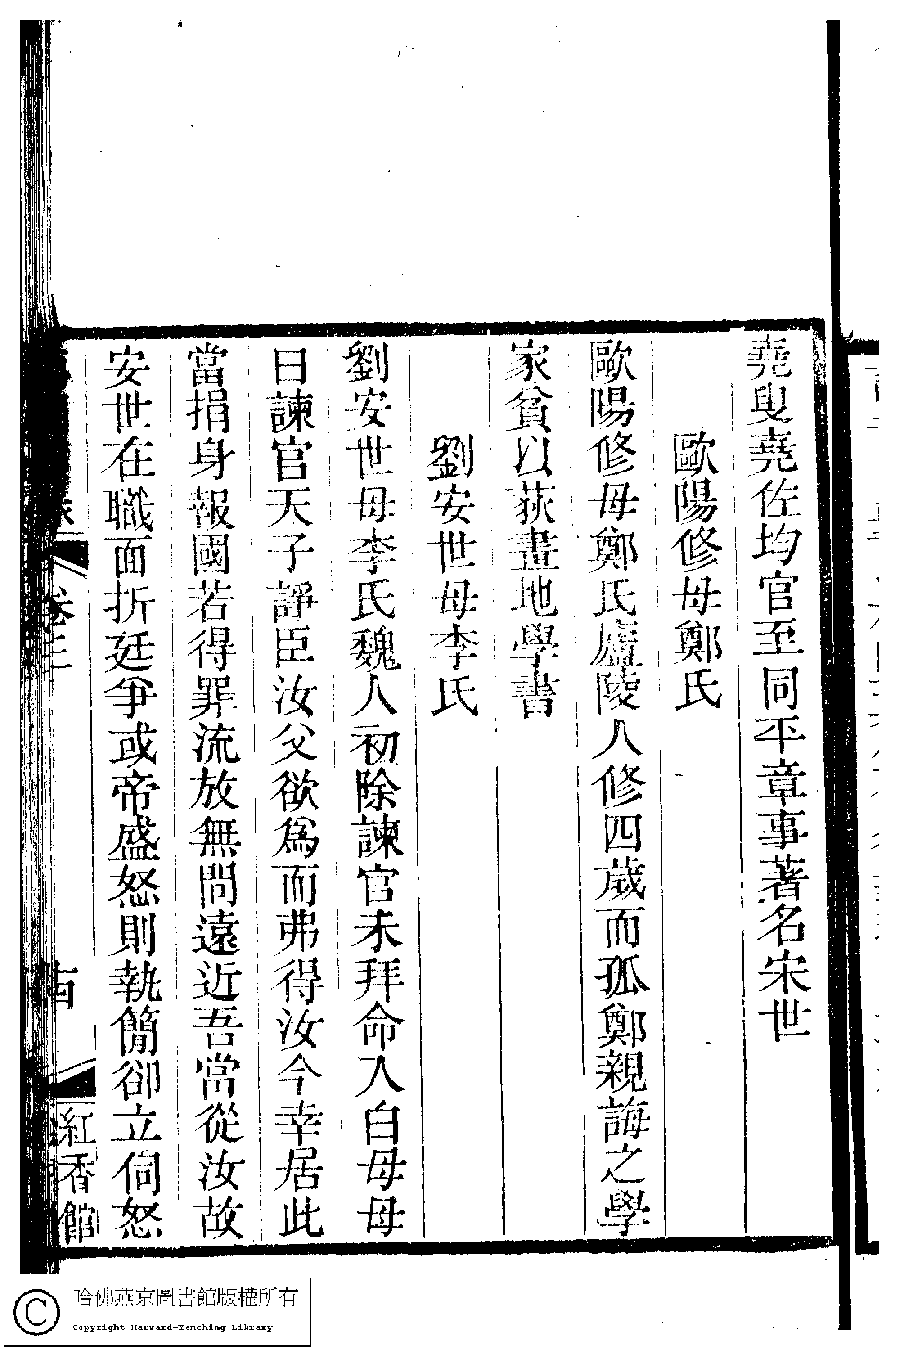 堯叟堯佐均官至同平章事著名宋世
歐陽修母鄭氏
歐陽修母鄭氏廬陵人修四歲而孤鄭親誨之學
家貧以荻畫地學書
劉安世母李氏
劉安世母李氏魏人初除諫官未拜命入白母母
曰諫官天子諍臣汝父欲爲而弗得汝今幸居此
當捐身報國若得罪流放無問遠近吾當從汝故
安世在職面折廷爭或帝盛怒則執簡卻立伺怒
卷三
紅香館
哈佛燕京圖書館版權所有
Copyright Harvard-Yenching Library